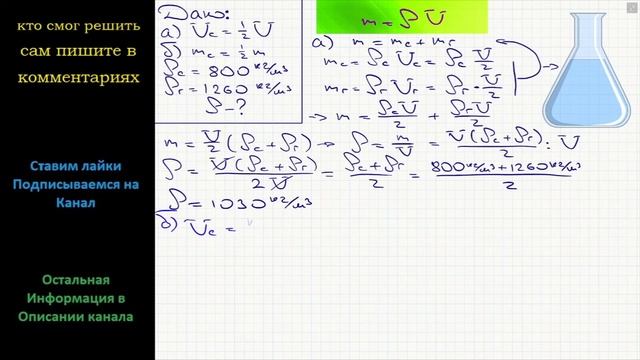 кто смог решить
сам пишите в
комментариях
Ставим лайки
Подписываемся на
Канал
Остальная
Информация в
Описании канала
Дано:
а) V̄с = ½ V̄
б) mс = ½ m
ρс = 800 кг/м³
ρг = 1260 кг/м³
ρ - ?
m = ρ V̄
а) m = mс + mг
mс = ρс V̄с = ρс V̄/2
mг = ρг V̄г = ρг · V̄/2
→ m = ρс V̄/2 + ρг V̄/2
m = V̄/2 (ρс + ρг) → ρ = m/V̄ = V̄(ρс + ρг)/2 : V̄
ρ = V̄(ρс + ρг)/2V̄ = ρс + ρг/2 = 800 кг/м³ + 1260 кг/м³/2
ρ = 1030 кг/м³
б) V̄с =